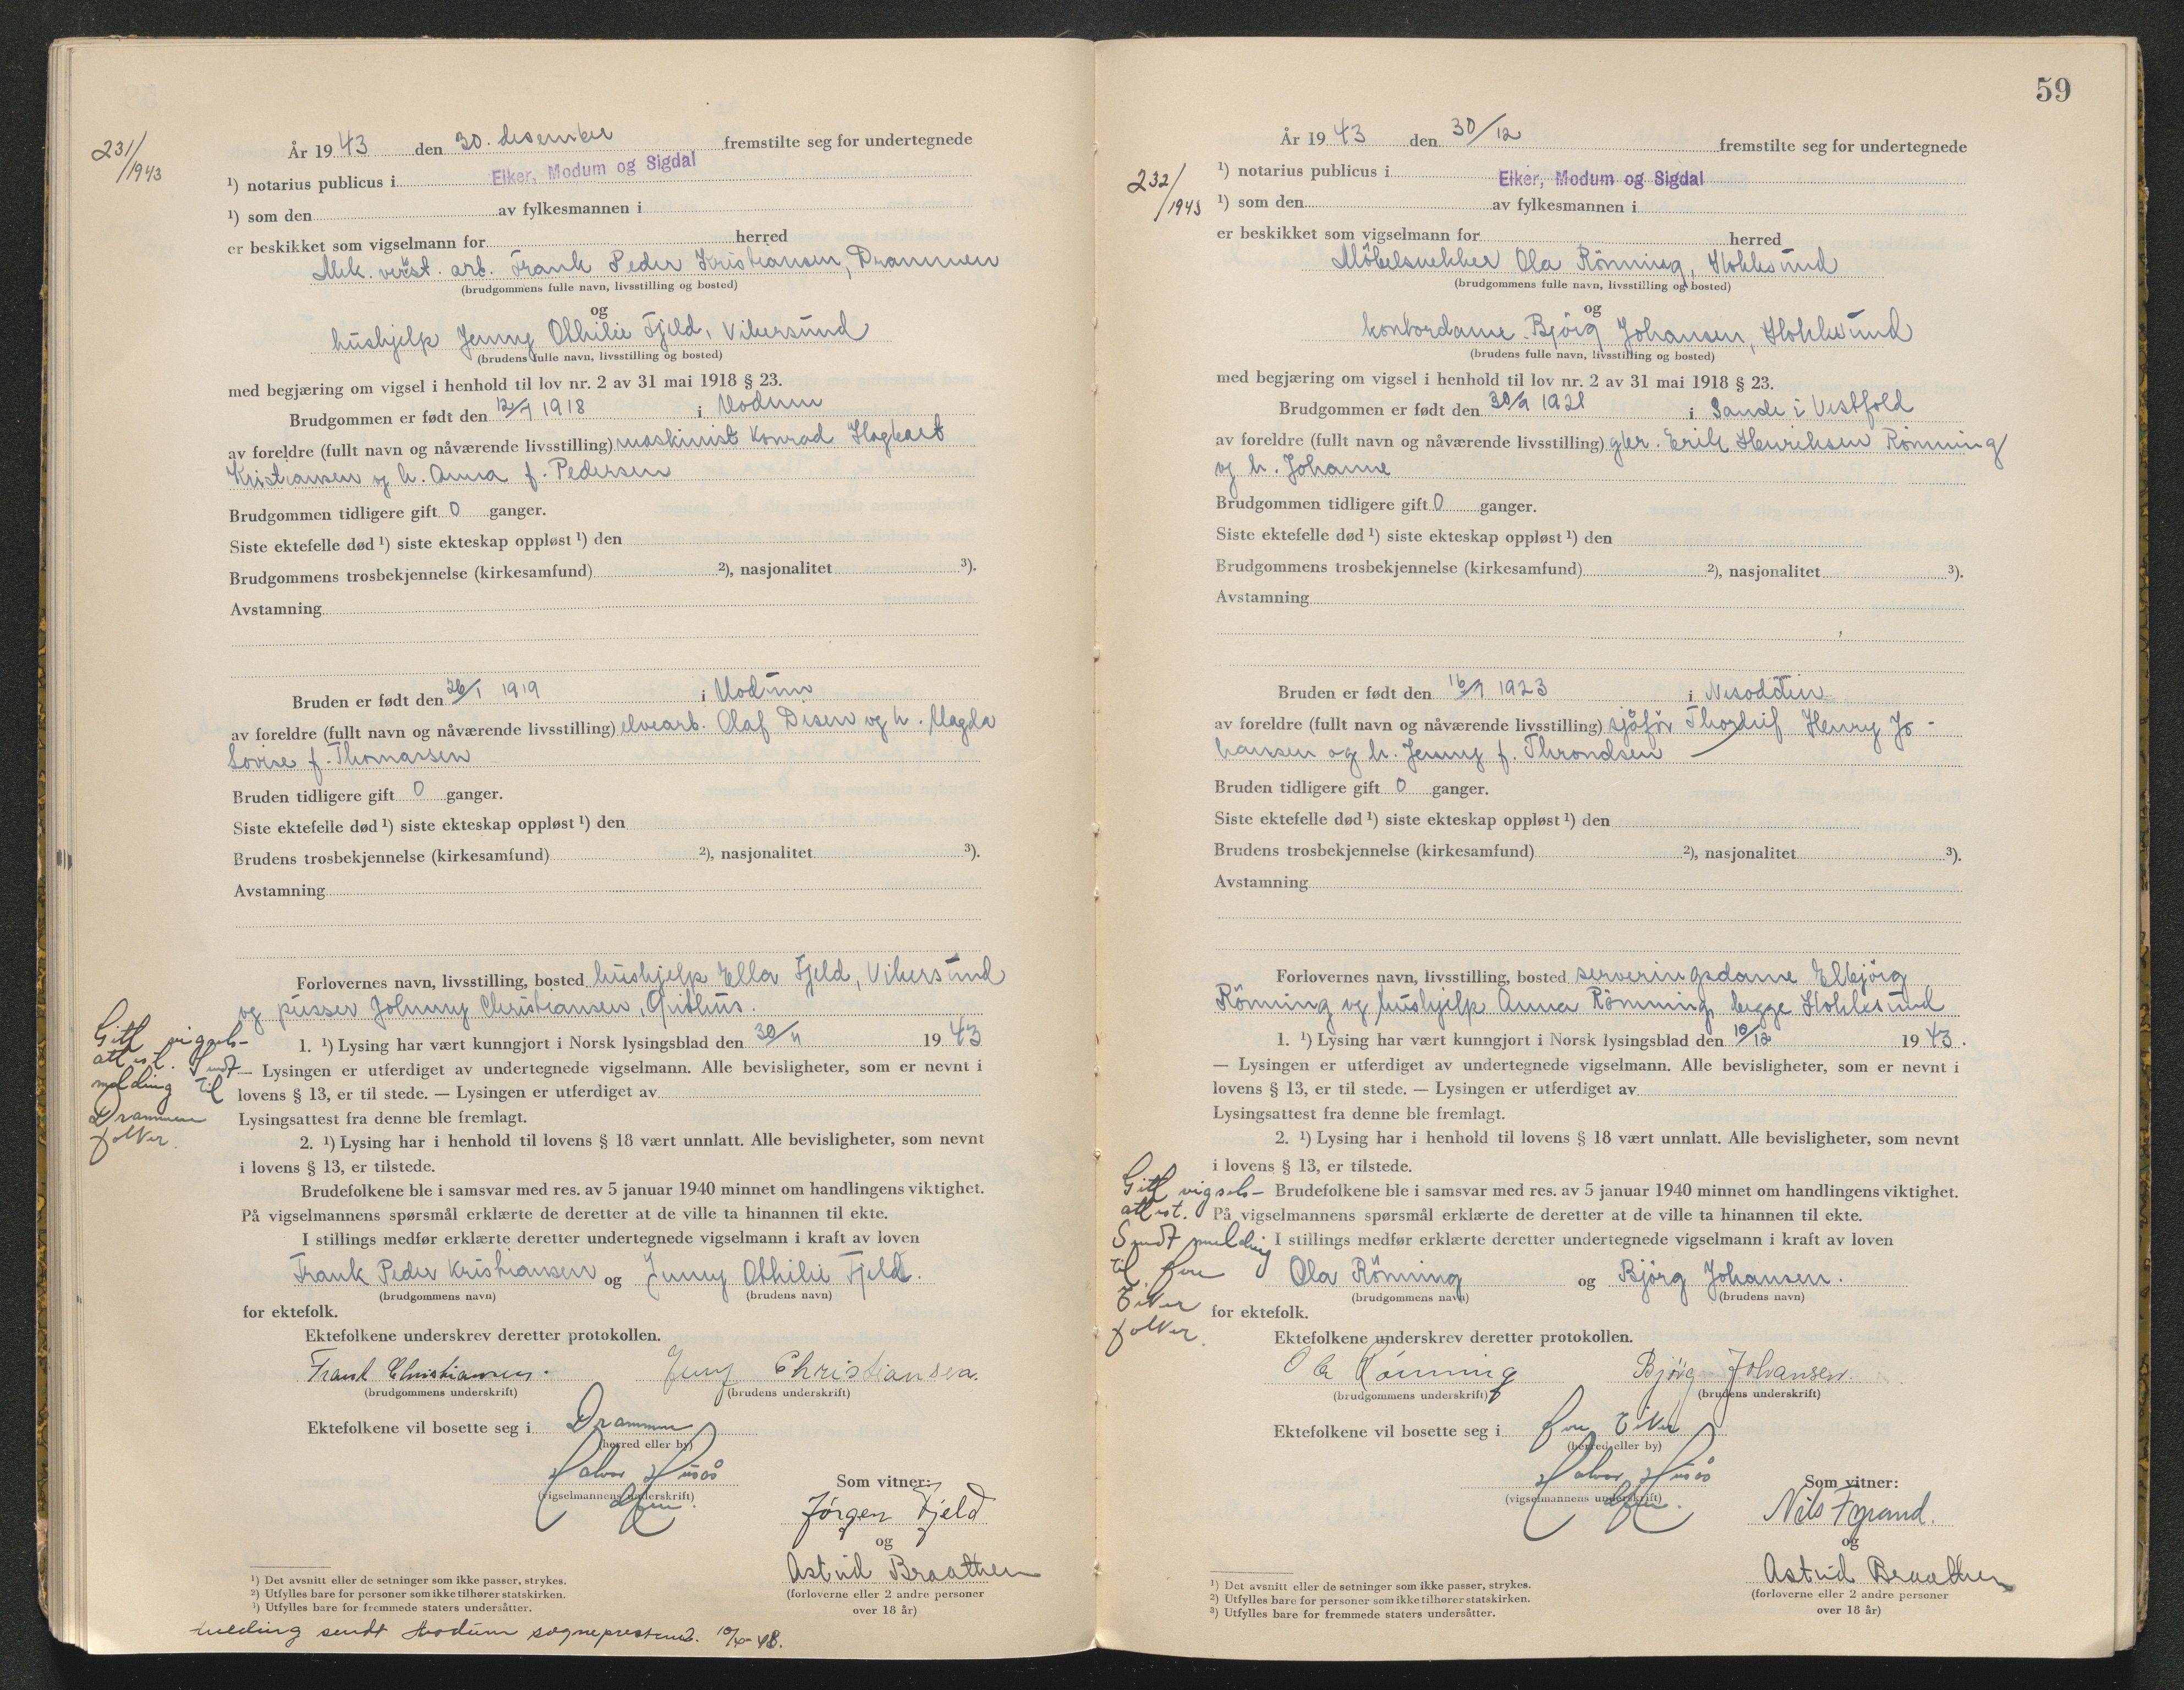 231/1943
År 1943 den 30. desember fremstilte seg for undertegnede
¹) notarius publicus i Eiker, Modum og Sigdal
¹) som den av fylkesmannen i
er beskikket som vigselmann for herred
Mek. verkst. arb. Frank Peder Kristiansen, Drammen
(brudgommens fulle navn, livsstilling og bosted)
og
hushjelp Jenny Othilie Fjeld, Vikersund
(brudens fulle navn, livsstilling og bosted)
med begjæring om vigsel i henhold til lov nr. 2 av 31 mai 1918 § 23.
Brudgommen er født den 1918 i Modum
av foreldre (fullt navn og nåværende livsstilling) maskinist Konrad Hagbart
Kristiansen og h. Anna f. Pedersen
Brudgommen tidligere gift 0 ganger.
Siste ektefelle død ¹) siste ekteskap oppløst ¹) den
Brudgommens trosbekjennelse (kirkesamfund) ²), nasjonalitet ³).
Avstamning
Bruden er født den 26/1 1919 i Modum
av foreldre (fullt navn og nåværende livsstilling) elvearb. Olaf Disen og h. Magda
Lovise f. Thomassen
Bruden tidligere gift 0 ganger.
Siste ektefelle død ¹) siste ekteskap oppløst ¹) den
Brudens trosbekjennelse (kirkesamfund) ²), nasjonalitet ³).
Avstamning
Forlovernes navn, livsstilling, bosted hushjelp Ella Fjeld, Vikersund
og pusser Johnny Christiansen, Grithus.
1. ¹) Lysing har vært kunngjort i Norsk lysingsblad den 30/11 1943
— Lysingen er utferdiget av undertegnede vigselmann. Alle bevisligheter, som er nevnt i
lovens § 13, er til stede. — Lysingen er utferdiget av
Lysingsattest fra denne ble fremlagt.
2. ¹) Lysing har i henhold til lovens § 18 vært unnlatt. Alle bevisligheter, som nevnt
i lovens § 13, er tilstede.
Gitt vigsels-
attest. Sendt
melding til
Drammen
folker.
Brudefolkene ble i samsvar med res. av 5 januar 1940 minnet om handlingens viktighet.
På vigselmannens spørsmål erklærte de deretter at de ville ta hinannen til ekte.
I stillings medfør erklærte deretter undertegnede vigselmann i kraft av loven
Frank Peder Kristiansen og Jenny Othilie Fjeld.
(brudgommens navn) (brudens navn)
for ektefolk.
Ektefolkene underskrev deretter protokollen.
Frank Christiansen. Jenny Christiansen.
(brudgommens underskrift) (brudens underskrift)
Ektefolkene vil bosette seg i Drammen
(herred eller by)
Halvor Husås
(vigselmannens underskrift)
Som vitner:
Jørgen Fjeld
og
Astrid Braathen
(forloverne eller 2 andre personer
over 18 år)
¹) Det avsnitt eller de setninger som ikke passer, strykes.
²) Utfylles bare for personer som ikke tilhører statskirken.
³) Utfylles bare for fremmede staters undersåtter.
Melding sendt Modum sogneprestemb. 48.
59
232/1943
År 1943 den 30/12 fremstilte seg for undertegnede
¹) notarius publicus i Eiker, Modum og Sigdal
¹) som den av fylkesmannen i
er beskikket som vigselmann for herred
Möbelsnekker Ola Rönning, Hokksund
(brudgommens fulle navn, livsstilling og bosted)
og
kontordame Björg Johansen, Hokksund
(brudens fulle navn, livsstilling og bosted)
med begjæring om vigsel i henhold til lov nr. 2 av 31 mai 1918 § 23.
Brudgommen er født den 30/9 1921 i Sande i Vestfold
av foreldre (fullt navn og nåværende livsstilling) gbr. Erik Henriksen Rönning
og h. Johanne
Brudgommen tidligere gift 0 ganger.
Siste ektefelle død ¹) siste ekteskap oppløst ¹) den
Brudgommens trosbekjennelse (kirkesamfund) ²), nasjonalitet ³).
Avstamning
Bruden er født den 1923 i Nesodden
av foreldre (fullt navn og nåværende livsstilling) sjåför Thorleif Henry Jo-
hansen og h. Jenny f. Throndsen
Bruden tidligere gift 0 ganger.
Siste ektefelle død ¹) siste ekteskap oppløst ¹) den
Brudens trosbekjennelse (kirkesamfund) ²), nasjonalitet ³).
Avstamning
Forlovernes navn, livsstilling, bosted serveringsdame Elbjörg
Rönning og hushjelp Anna Rönning, begge Hokksund
1. ¹) Lysing har vært kunngjort i Norsk lysingsblad den 10/12 1943.
— Lysingen er utferdiget av undertegnede vigselmann. Alle bevisligheter, som er nevnt i
lovens § 13, er til stede. — Lysingen er utferdiget av
Lysingsattest fra denne ble fremlagt.
2. ¹) Lysing har i henhold til lovens § 18 vært unnlatt. Alle bevisligheter, som nevnt
i lovens § 13, er tilstede.
Gitt vigsels-
attest.
Sendt melding
til
Eiker
folker.
Brudefolkene ble i samsvar med res. av 5 januar 1940 minnet om handlingens viktighet.
På vigselmannens spørsmål erklærte de deretter at de ville ta hinannen til ekte.
I stillings medfør erklærte deretter undertegnede vigselmann i kraft av loven
Ola Rönning og Björg Johansen.
(brudgommens navn) (brudens navn)
for ektefolk.
Ektefolkene underskrev deretter protokollen.
Ola Rönning Björg Johansen.
(brudgommens underskrift) (brudens underskrift)
Ektefolkene vil bosette seg i Eiker
(herred eller by)
Halvor Husås
(vigselmannens underskrift)
Som vitner:
Nils
og
Astrid Braathen
(forloverne eller 2 andre personer
over 18 år)
¹) Det avsnitt eller de setninger som ikke passer, strykes.
²) Utfylles bare for personer som ikke tilhører statskirken.
³) Utfylles bare for fremmede staters undersåtter.